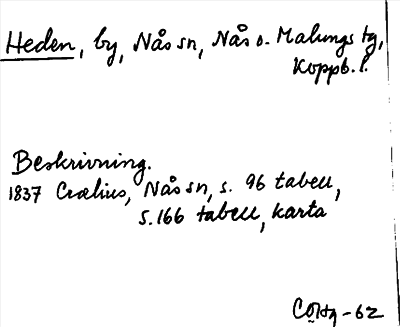 Heden, by, Nås sn, Nås o. Malungs tg,
Koppb. l.
Beskrivning.
1837 Crælius, Nås sn, s. 96 tabell,
s. 166 tabell, karta